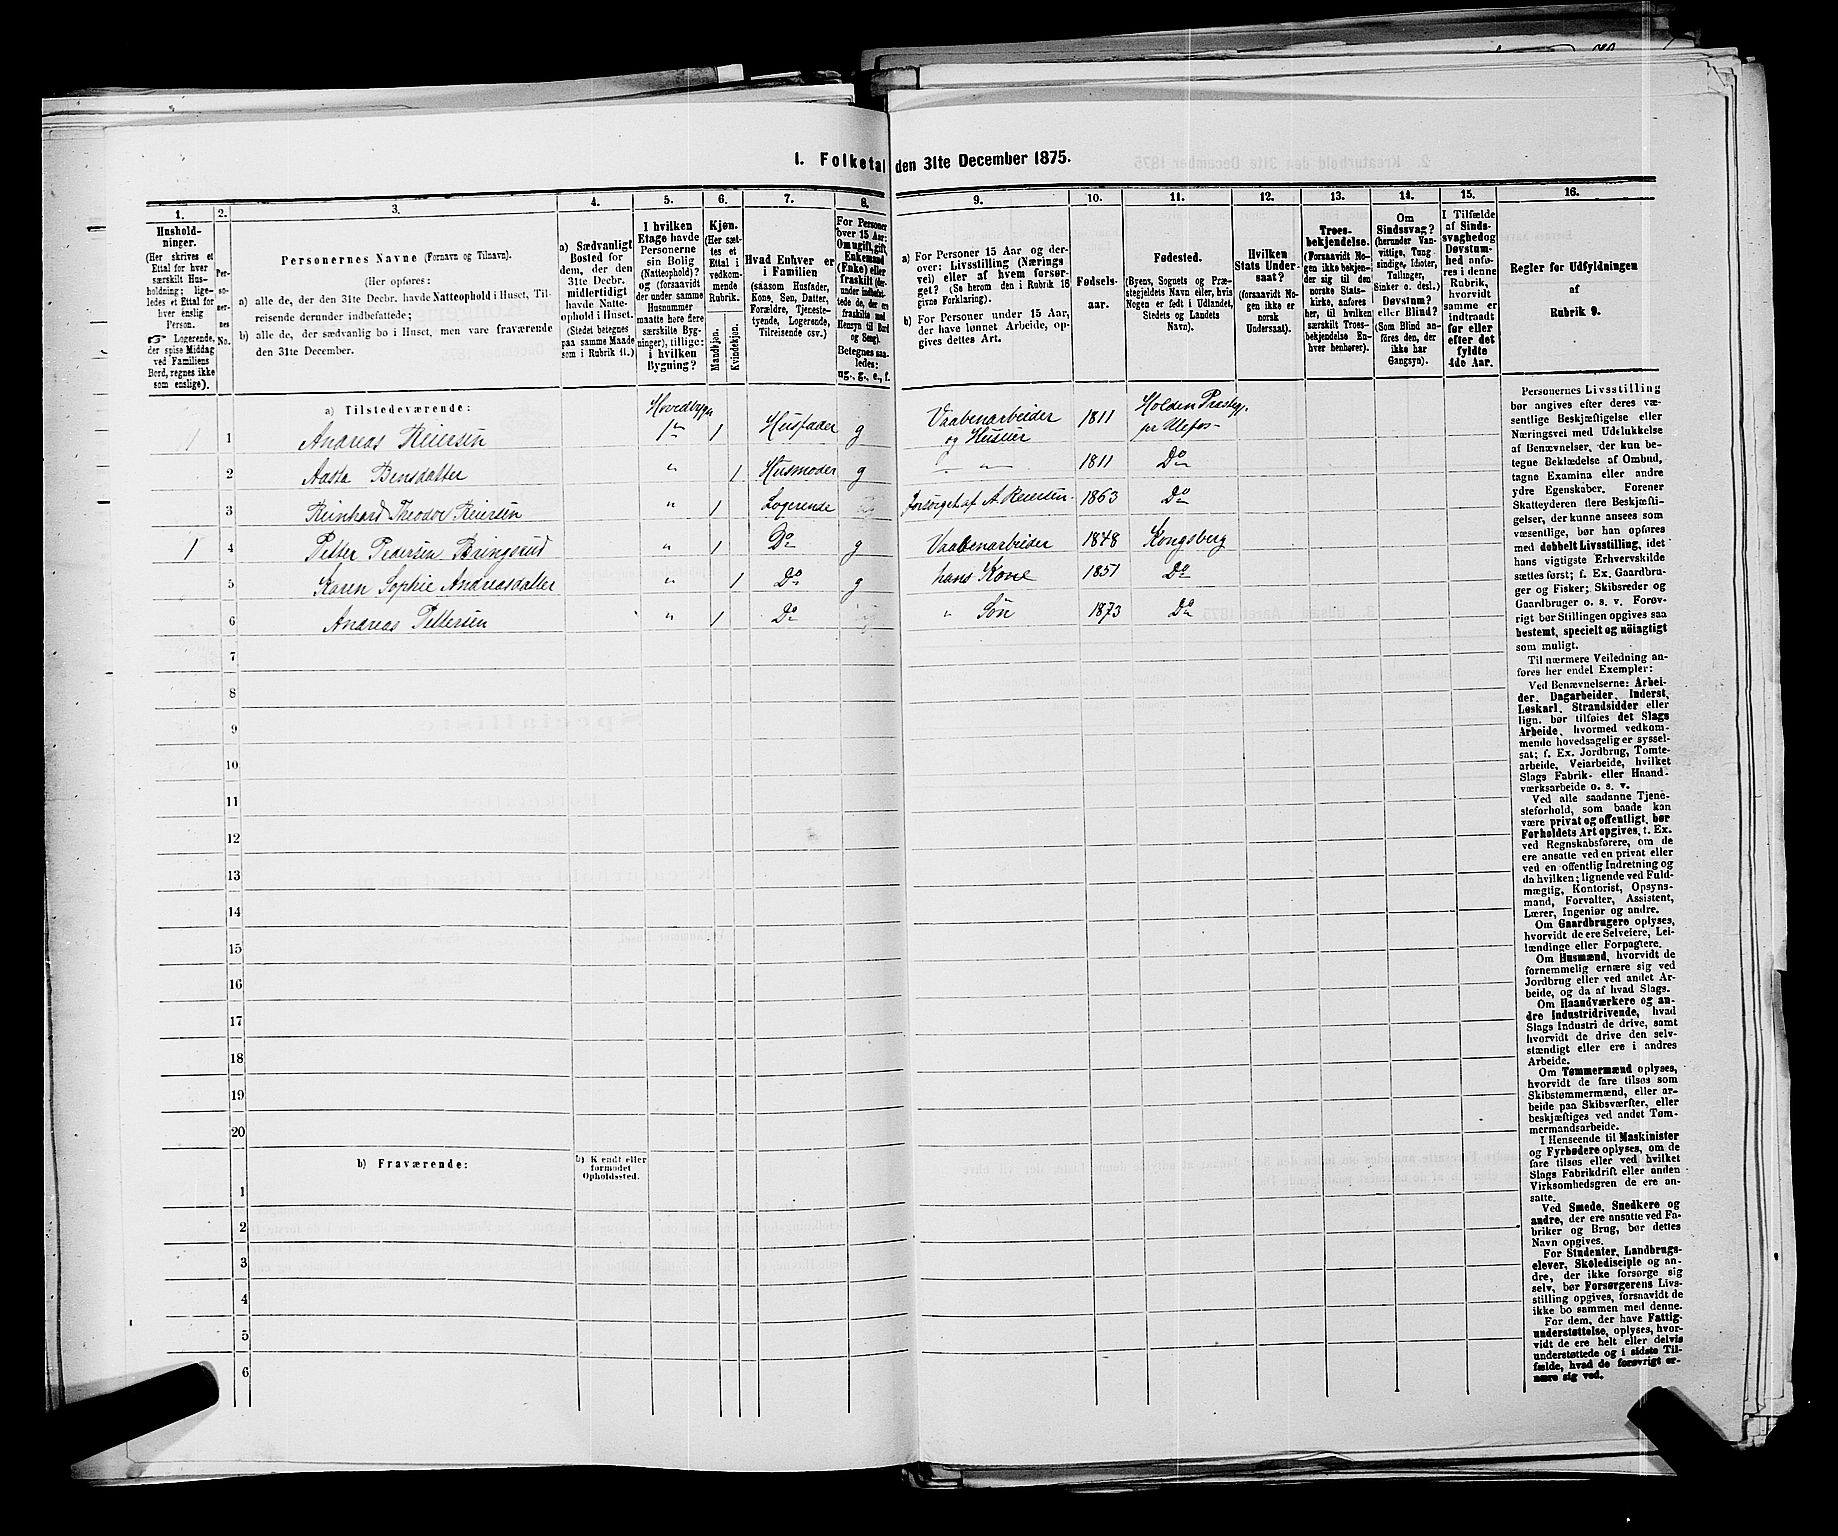 1. Folketal den 31te December 1875.
1.
2.
3.
4.
5.
6.
7.
8.
9.
10.
11.
12.
13.
14.
15.
16.
Hushold-
ninger.
(Her skrives et
Ettal for hver
særskilt Hus-
holdning; lige-
ledes et Ettal for
hver enslig
Person.
☞ Logerende,
der spise Middag
ved Familiens
Bord, regnes ikke
som enslige).
Per-
so-
ner-
nes
No.
Personernes Navne (Fornavn og Tilnavn).
(Her opføres:
a) alle de, der den 31te Decbr. havde Natteophold i Huset, Til-
reisende derunder indbefattede;
b) alle de, der sædvanlig bo i Huset, men vare fraværende
den 31te December.
a) Sædvanligt
Bosted for
dem, der den
31te Decbr.
midlertidigt
havde Natte-
ophold i Huset.
(Stedet betegnes
paa samme Maade
som i Rubrik 11.)
I hvilken
Etage havde
Personerne
sin Bolig
(Natteophold)?
og (forsaavidt
der under samme
Husnummer
maatte høre flere
særskilte Byg-
ninger), tillige:
i hvilken
Bygning?
Kjøn.
(Her sæt-
tes et
Ettal i
vedkom-
mende
Rubrik.
Mandkjøn.
Kvindekjøn.
Hvad Enhver er
i Familien
(saasom Husfader,
Kone, Søn, Datter,
Forældre, Tjeneste-
tyende, Logerende,
Tilreisende osv.)
For Personer
over 15 Aar:
Om ugift, gift,
Enkemand
(Enke) eller
fraskilt (der-
under indbefat-
tede de, der ere
fraskilte med
Hensyn til Bord
og Seng).
Betegnes saa-
ledes:
ug., g., e., f.
a) For Personer 15 Aar og der-
over: Livsstilling (Nærings
vei) eller af hvem forsør-
get? (Se herom den i Rubrik 16
givne Forklaring).
b) For Personer under 15 Aar,
der have lønnet Arbeide, op-
gives dettes Art.
Fødsels-
aar.
Fødested.
(Byens, Sognets og Præ-
stegjeldets Navn eller, hvis
Nogen er født i Udlandet,
Stedets og Landets
Navn).
Hvilken
Stats Under-
saat?
(forsaavidt No-
gen ikke er
norsk
Undersaat).
Troes-
bekjendelse.
(Forsaavidt No-
gen ikke bekjen-
der sig til den
norske Stats-
kirke, anføres
her, til hvilken
særskilt Troes-
bekjendelse En-
hver henhører).
Om
Sindssvag?
(herunder Van-
vittige, Tung-
sindige, Idioter,
Tullinger,
Sinker o. desl.)
Døvstum?
eller Blind?
(Som Blind an-
føres den, der
ikke har
Gangsyn).
I Tilfælde
af Sinds-
svaghed og
Døvstum-
hed anfø-
res i denne
Rubrik,
hvorvidt
samme er
indtraadt
før eller
efter det
fyldte
4de Aar.
Regler for Udfyldningen
af
Rubrik 9.
a) Tilstedeværende:
Hovedbygn
1 1 Andreas Reiersen 1ste 1 Husfader g Vaabenarbeider og Huseier 1811 Holden Prestegj. pr Ulefos
2 Aasta Bensdatter " 1 Husmoder g — " — 1811 Do
3 Reinhard Theodor Reiersen " 1 Logerende Forsørget af A. Reiersen 1863 Do
1 4 Petter Pedersen Bringsrud " 1 Do g Vaabenarbeider 1848 Kongsberg
5 Karen Sophie Andreasdatter " 1 Do g hans Kone 1851 Do
6 Andreas Pettersen " 1 Do " Søn 1873 Do
7
8
9
10
11
12
13
14
15
16
17
18
19
20
b) Fraværende:
b) Kendt eller
formodet
Opholdssted.
1
2
3
4
5
6
Personernes Livsstilling
bør angives efter deres væ-
sentlige Beskjæftigelse eller
Næringsvei med Udelukkelse
af Benævnelser, der kun be-
tegne Beklædelse af Ombud,
tagne Examina eller andre
ydre Egenskaber. Forener
Skatteyderen flere Beskjæfti-
gelser, der kunne ansees som
væsentlige, bør han opføres
med dobbelt Livsstilling, idet
hans vigtigste Erhvervskilde
sættes først; f. Ex. Gaardbru-
ger og Fisker; Skibsreder og
Gaardbruger o. s. v. Forøv-
rigt bør Stillingen opgives saa
bestemt, specielt og nöiagtigt
som muligt.
Til nærmere Veiledning an-
føres her endel Exempler:
Ved Benævnelserne: Arbei-
der, Dagarbeider, Inderst,
Løskarl, Strandsidder eller
lign. bør tilføies det Slags
Arbeide, hvormed vedkom-
mende hovedsagelig er syssel-
sat; f. Ex. Jordbrug, Tomte-
arbeide, Veiarbeide, hvilket
Slags Fabrik- eller Haand-
værksarbeide o. s. v.
Ved alle saadanne Tjene-
steforhold, som baade kan
være privat og offentligt, bør
Forholdets Art opgives, t. Ex.
ved Regnskabsførere, om de
ere ansatte ved en privat eller
ved en offentlig Indretning og
da hvilken; lignende ved Fuld-
mægtig, Kontorist, Opsyns-
mand, Forvalter, Assistent,
Lærer, Ingeniør og andre.
Om Gaardbrugere oplyses,
hvorvidt de ere Selveiere, Lei-
lændinge eller Forpagtere.
Om Husmænd, hvorvidt de
fornemmelig ernære sig ved
Jordbrug eller ved andet Ar-
beide, og da af hvad Slags.
Om Haandværkere og an-
dre Industridrivende, hvad
Slags Industri de drive, samt
hvorvidt de drive den selv-
stændigt eller ere i andres
Arbeide.
Om Tømmermænd oplyses,
hvorvidt de fare tilsøs som
Skibstømmermænd, eller ar-
beide paa Skibsværfter, eller
beskjæftiges ved andet Tøm-
mermandsarbeide.
I Henseende til Maskinister
og Fyrbødere oplyses, om de
fare tilsøs eller ved hvilket
Slags Fabrikdrift eller anden
Virksomhedsgren de ere an-
satte.
Ved Smede, Snedkere og
andre, der ere ansatte ved Fa-
briker og Brug, bør dettes
Navn opgives.
For Studenter, Landbrugs-
elever, Skoledisciple og an-
dre, der ikke forsørge sig
selv, bør Forsørgerens Livs-
stilling opgives, forsaavidt de
ikke bo sammen med denne.
For dem, der have Fattig-
understøttelse, oplyses, hvor-
vidt de ere helt eller delvis
understøttede og i sidste Til-
fælde, hvad de forøvrigt er-
nære sig ved.